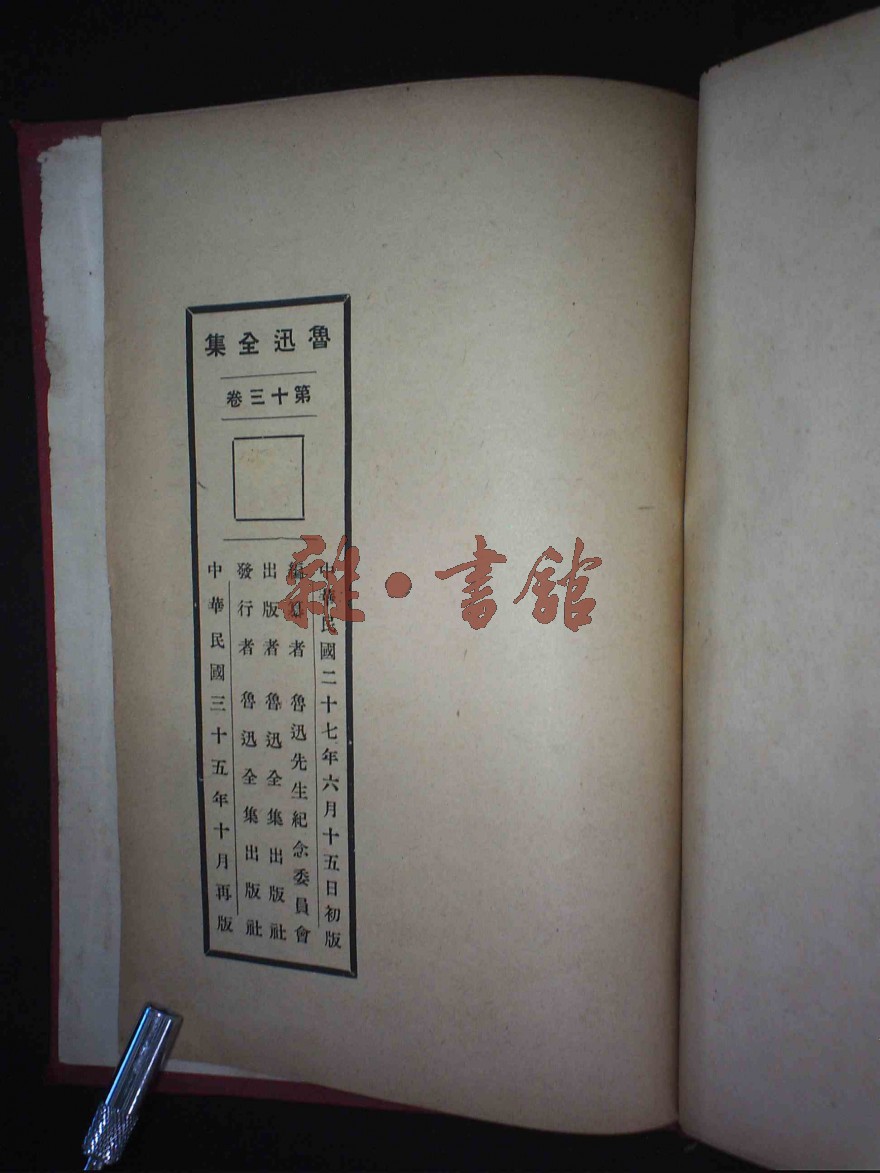 魯迅全集
第十三卷
中華民國二十七年六月十五日初版
編纂者 魯迅先生紀念委員會
出版者 魯迅全集出版社
發行者 魯迅全集出版社
中華民國三十五年十月再版
雜·書館